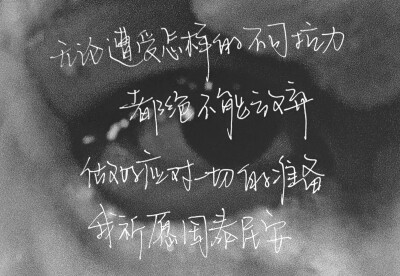 无论遭受怎样的不同拉力
都绝不能言放弃
做好应对一切的准备
我祈愿国泰民安